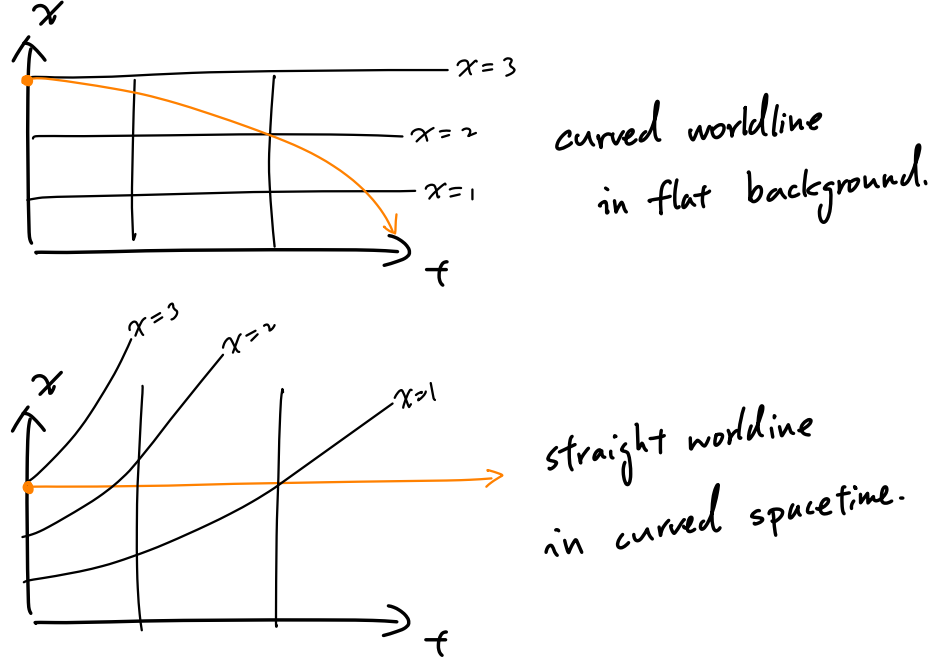 x
x=3
x=2
x=1
curved worldline
in flat background.
t
x=3
x=2
x
x=1
straight worldine
in curved spacetime.
t